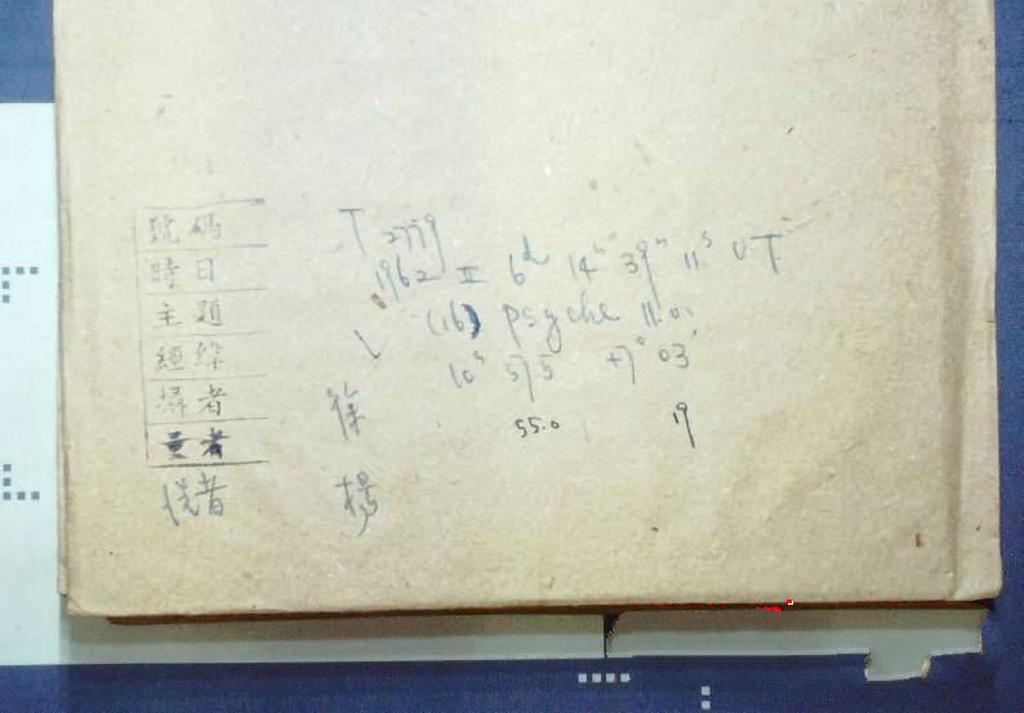 號碼 T 2779
時日 1962 II 6d 14h 39m 11s UT
主題 (16) Psyche 11.0
經緯 10h 57.5 +7° 03'
者 徐
55.0 19
量者
洗者 楊